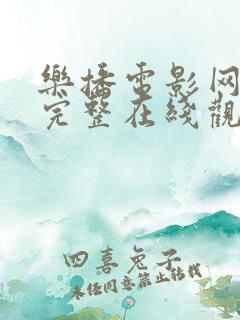 樂播电影网
完整在线觀
四喜兔子
未经同意禁止转载